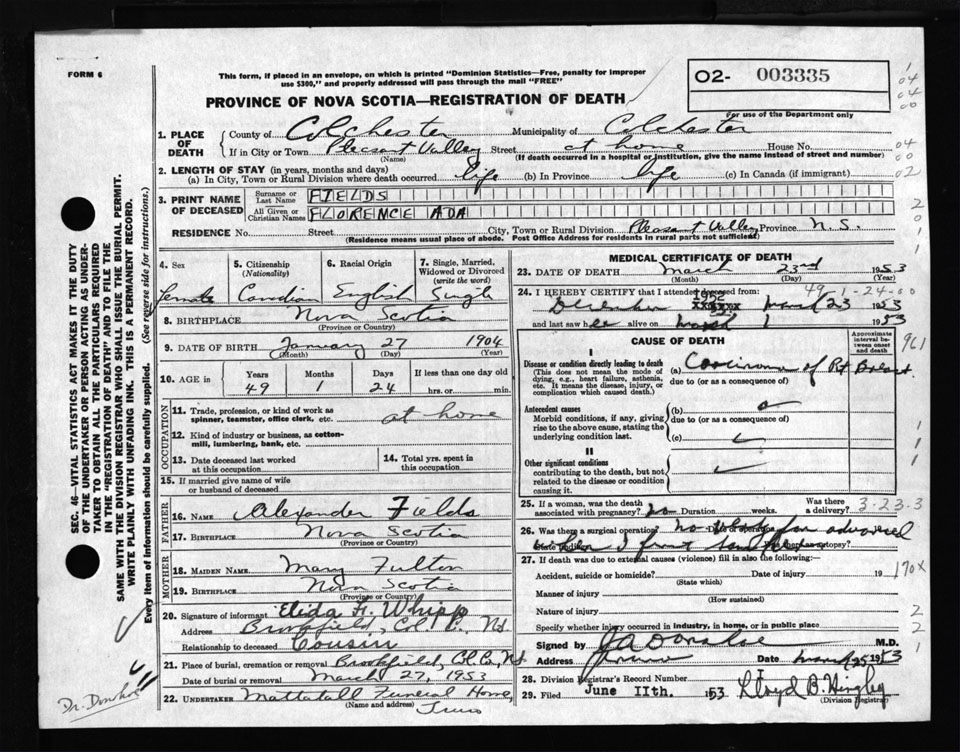 FORM 6
This form, if placed in an envelope, on which is printed "Dominion Statistics—Free, penalty for improper
use $300," and properly addressed will pass through the mail "FREE"
02- 003335
For use of the Department only
PROVINCE OF NOVA SCOTIA—REGISTRATION OF DEATH
1. PLACE OF DEATH
County of Colchester Municipality of Colchester
If in City or Town Pleasant Valley Street at home House No.
(Name) (If death occurred in a hospital or institution, give the name instead of street and number)
2. LENGTH OF STAY (in years, months and days)
(a) In City, Town or Rural Division where death occurred life (b) In Province life (c) In Canada (if immigrant)
3. PRINT NAME OF DECEASED
Surname or Last Name FIELDS
All Given or Christian Names FLORENCE ADA
RESIDENCE No. Street City, Town or Rural Division Pleasant Valley Province N. S.
(Residence means usual place of abode. Post Office Address for residents in rural parts not sufficient)
4. Sex Female
5. Citizenship (Nationality) Canadian
6. Racial Origin English
7. Single, Married, Widowed or Divorced (write the word) Single
8. BIRTHPLACE Nova Scotia
(Province or Country)
9. DATE OF BIRTH January 27 1904
(Month) (Day) (Year)
10. AGE in Years Months Days If less than one day
49 1 24 hrs. or min.
OCCUPATION
11. Trade, profession, or kind of work as
spinner, teamster, office clerk, etc. at home
12. Kind of industry or business, as cotton-
mill, lumbering, bank, etc.
13. Date deceased last worked
at this occupation
14. Total yrs. spent in
this occupation
15. If married give name of wife
or husband of deceased
FATHER
16. NAME Alexander Fields
17. BIRTHPLACE Nova Scotia
(Province or Country)
MOTHER
18. MAIDEN NAME Mary Fulton
19. BIRTHPLACE Nova Scotia
(Province or Country)
20. Signature of informant Elida H. Whipp
Address Brookfield, Col. Co., N.S.
Relationship to deceased Cousin
21. Place of burial, cremation or removal Brookfield, Col. Co., N.S.
Date of burial or removal March 27, 1953
22. UNDERTAKER Mattatall Funeral Home,
(Name and address) Truro
MEDICAL CERTIFICATE OF DEATH
23. DATE OF DEATH March 23rd 1953
(Month) (Day) (Year)
49-1-24-00
24. I HEREBY CERTIFY that I attended deceased from:
December 1952 March 23 1953
and last saw her alive on March 1 1953
CAUSE OF DEATH
Approximate interval between onset and death
I
Disease or condition directly leading to death
(This does not mean the mode of
dying, e.g., heart failure, asthenia,
etc. It means the disease, injury, or
complication which caused death.)
(a) Carcinoma of Rt Breast
due to (or as a consequence of)
Antecedent causes
Morbid conditions, if any, giving
rise to the above cause, stating the
underlying condition last.
(b)
due to (or as a consequence of)
(c)
II
Other significant conditions
contributing to the death, but not
related to the disease or condition
causing it.
25. If a woman, was the death
associated with pregnancy? no Duration weeks. Was there a delivery?
3-23-3
26. Was there a surgical operation? no Date of operation
State findings Was there an autopsy?
27. If death was due to external causes (violence) fill in also the following:—
Accident, suicide or homicide? Date of injury 19
(State which)
170X
Manner of injury
(How sustained)
Nature of injury
Specify whether injury occurred in industry, in home, or in public place
Signed by M.D.
Address Truro Date March 25 1953
28. Division Registrar's Record Number
29. Filed June 11th. 53 Lloyd B. Hingley
(Division Registrar)
SEC. 46—VITAL STATISTICS ACT MAKES IT THE DUTY
OF THE UNDERTAKER OR PERSON ACTING AS UNDER-
TAKER TO OBTAIN ALL THE PARTICULARS REQUIRED
IN THE "REGISTRATION OF DEATH" AND TO FILE THE
SAME WITH THE DIVISION REGISTRAR WHO SHALL ISSUE THE BURIAL PERMIT.
WRITE PLAINLY WITH UNFADING INK. THIS IS A PERMANENT RECORD.
Every item of information should be carefully supplied. (See reverse side for instructions.)
Dr. Donahoe